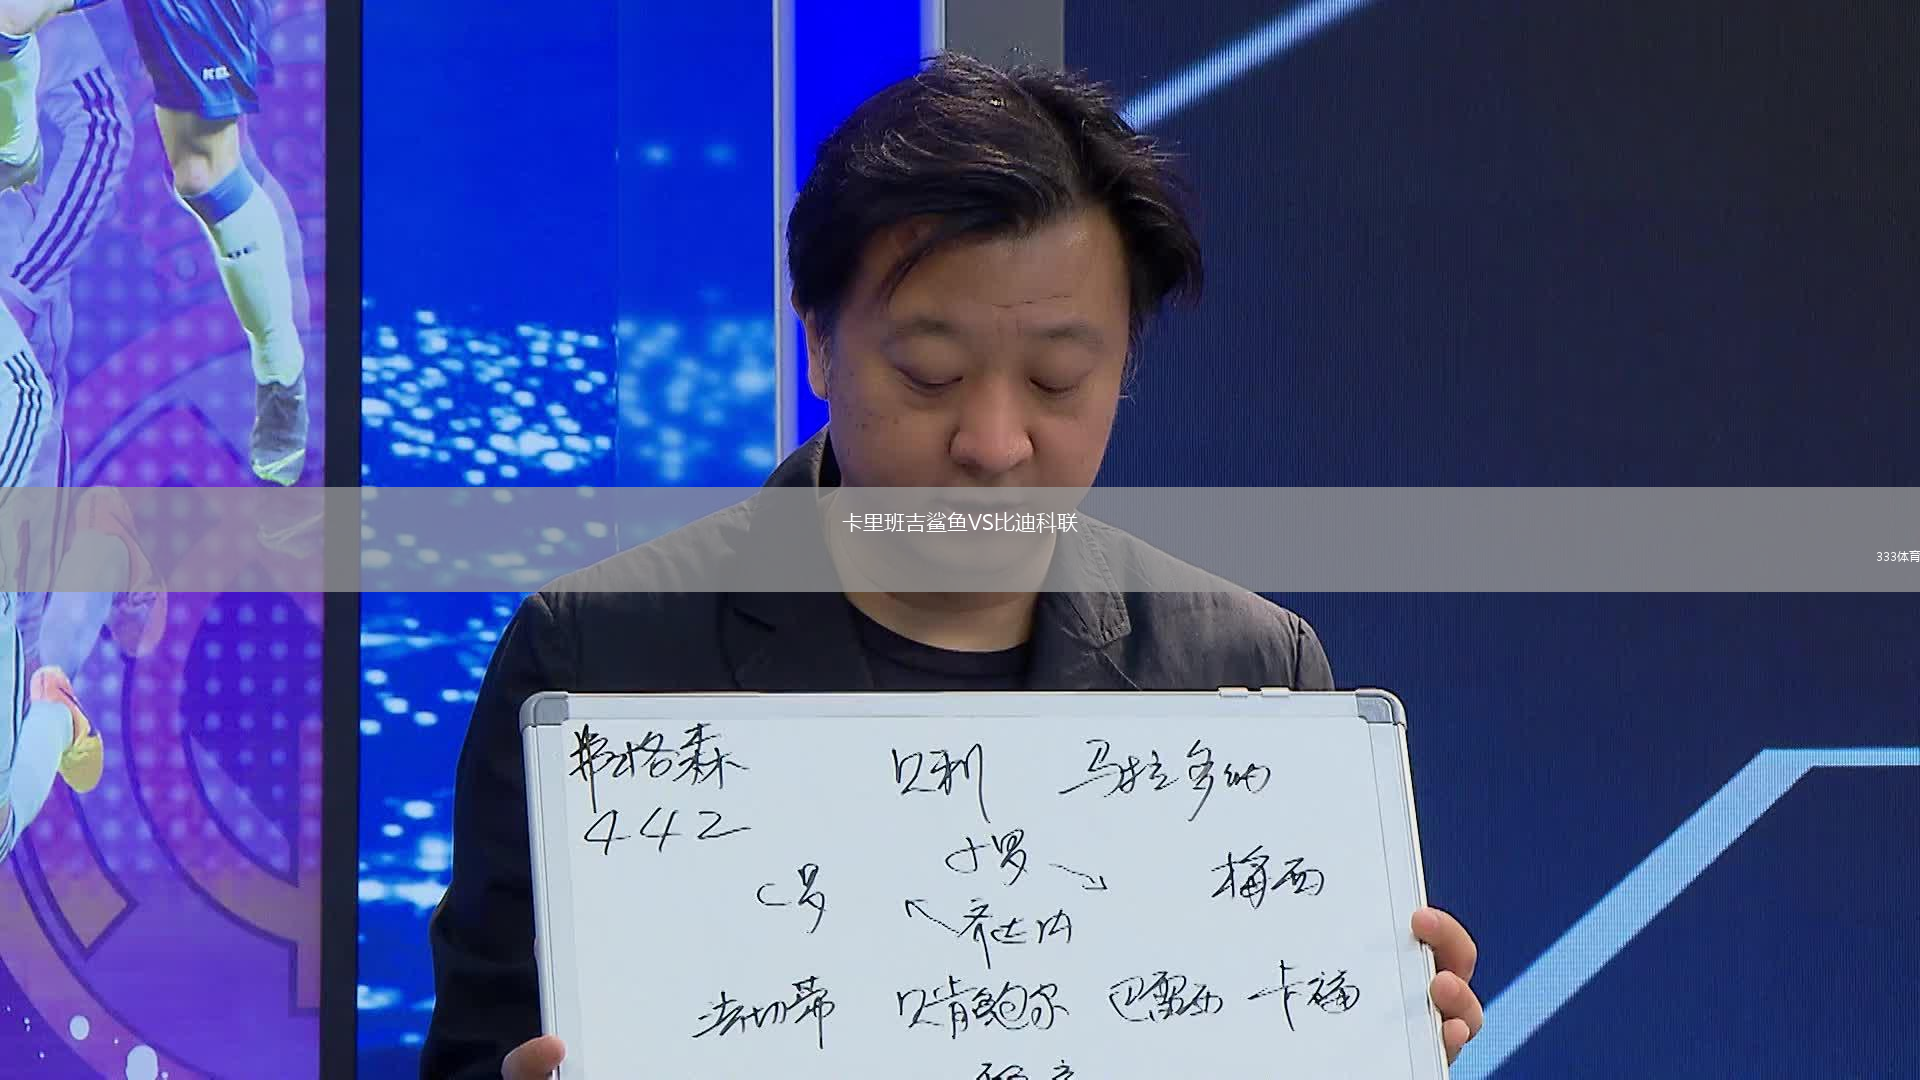 卡里班吉鲨鱼VS比迪科联
333体育
弗格森 贝利 马拉多纳
442
小罗
C罗 梅西
齐达内
法切蒂 贝肯鲍尔 巴雷西 卡福